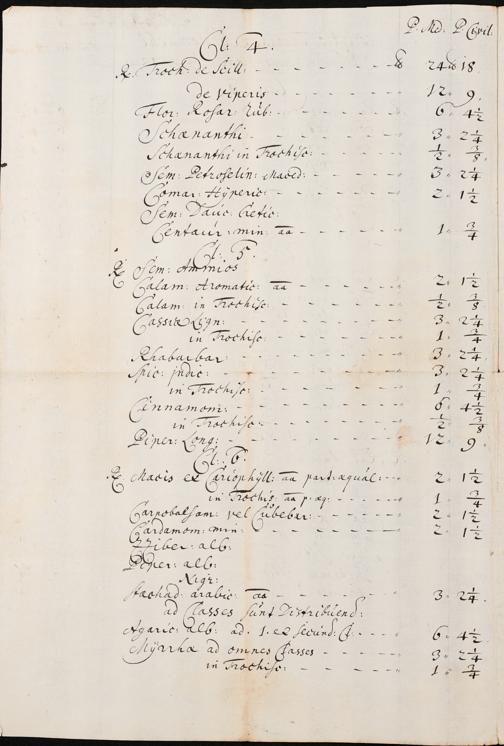 P. Md. P. Civil.
Cl: 4.
℞ Troch: de Scill: - - - ℔ 24 ℔ 18
de viperis - - - 12 9
Flor: Rosar: Rub: - - - 6 4½
Schænanthi - - - 3 2¼
Schænanthi in Trochisc: - - - ½ ⅜
Sem: Petroselin: Maced: - - - 3 2¼
Comar: Hÿperic: - - - 2 1½
Sem: Dauc: Cretic:
Centaur: min: aa - - - 1 ¾
Cl: 5.
℞ Sem: Ammios
Calam: Aromatic: aa - - - 2 1½
Calam: in Trochisc: - - - ½ ⅜
Cassiæ Lign: - - - 3 2¼
in Trochisc: - - - 1 ¾
Rhabarbar - - - 3 2¼
Spic: indic: - - - 3 2¼
in Trochisc: - - - 1 ¾
Cinnamom: - - - 6 4½
in Trochisc: - - - ½ ⅜
Piper: Long: - - - 12 9
Cl: 6.
℞ Macis et Cariophÿll: aa part: æquál: - - - 2 1½
in Trochis: aa p: æq: - - - 1 ¾
Carpobalsam: vel Cubebar: - - - 2 1½
Cardamom: min: - - - 2 1½
Zziber: alb:
Piper: alb:
Nigr:
Stæchad: arabic: aa - - - 3 2¼
ad Classes sunt Distribuend:
Agaric: alb: ad. 1. et secund: Cl: - - - 6 4½
Mÿrrhæ ad omnes Classes - - - 3 2¼
in Trochisc: - - - 1 ¾